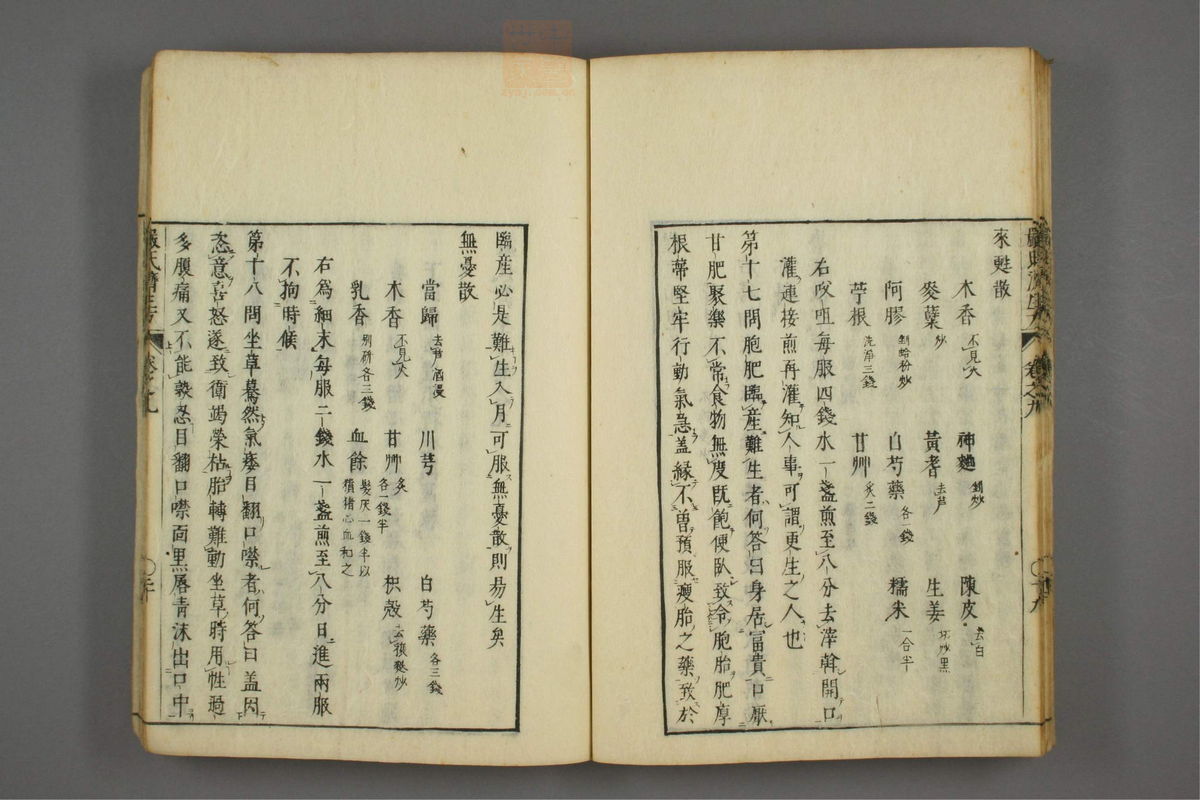 來甦散
木香不見火 神麯剉炒 陳皮去白
麥糵炒 黃耆去芦 生姜切炒黑
阿膠剉蛤粉炒 白芍藥各一錢 糯米一合半
苧根洗淨三錢 甘艸炙二錢
右㕮咀每服四錢水一盞煎至八分去滓斡開口
灌連接煎再灌知人事可謂更生之人也
第十七問胞肥臨産難生者何答曰身居冨貴口厭
甘肥聚樂不常食物無度既飽便臥致令胞胎肥厚
根蔕堅牢行動氣急盖緣不曽預服瘦胎之藥致於
臨産必是難生入月可服無憂散則易生矣
無憂散
當歸去芦酒浸 川芎 白芍藥各三錢
木香不見火 甘艸炙各一錢半 枳殼去穰麩炒
乳香別研各三錢 血餘髮灰一錢半以𧱏猪心血和之
右為細末每服二錢水一盞煎至八分日進兩服
不拘時候
第十八問坐草驀然氣痿目翻口噤者何答曰盖因
恣意喜怒遂致衛竭榮枯胎轉難動坐草時用性過
多腹痛又不能䕶忍目翻口噤面黒唇青沫出口中
嚴氏濟生方 卷之九